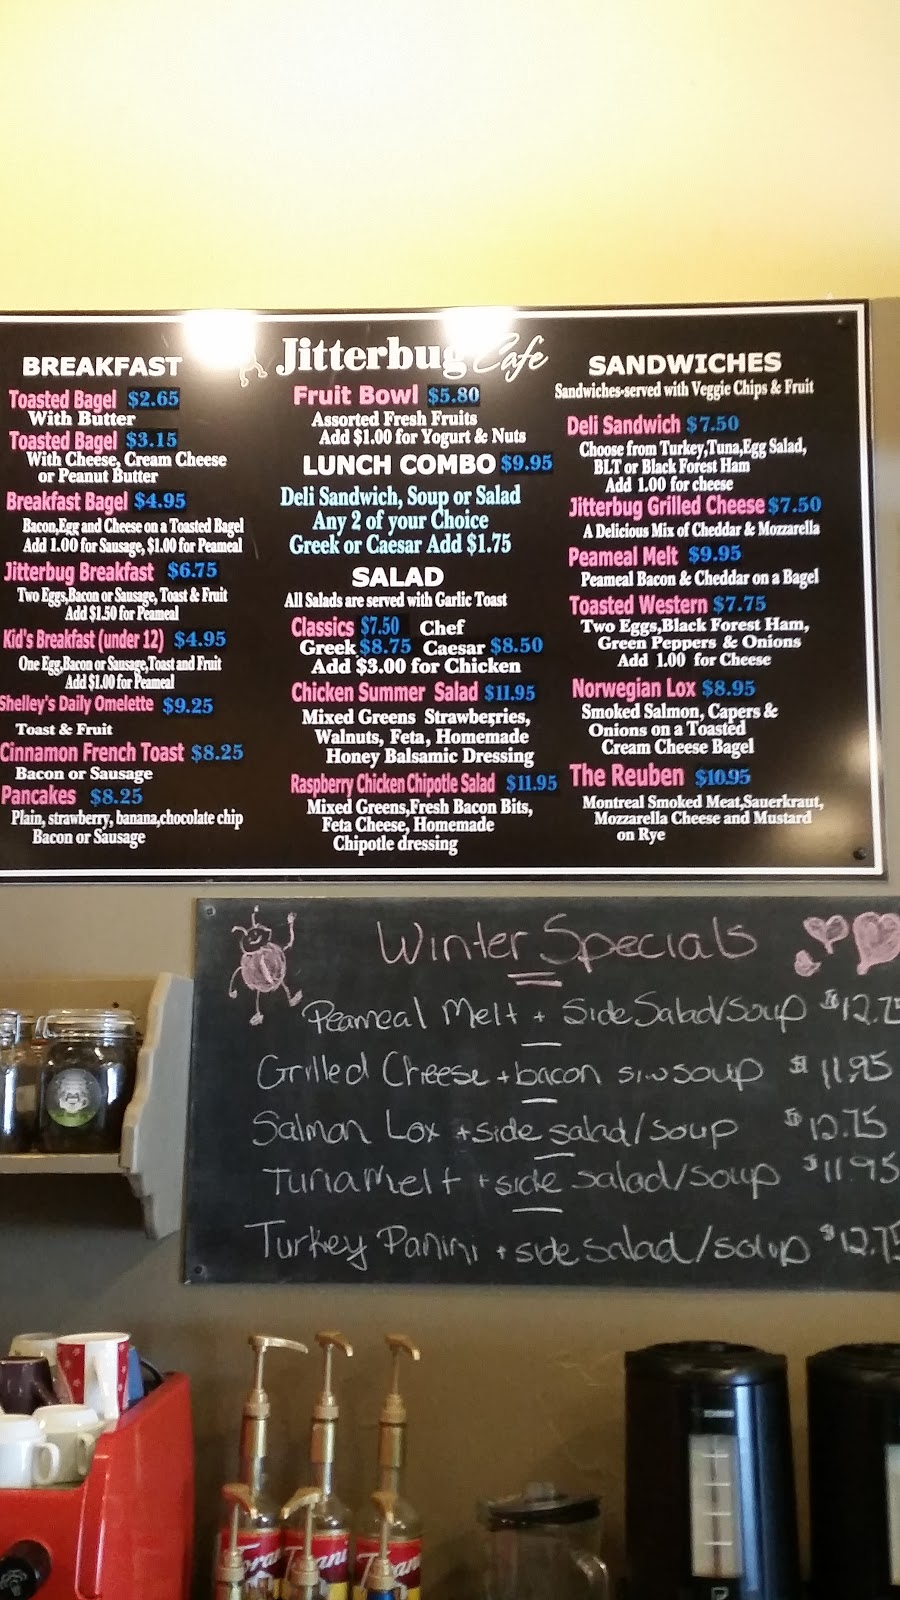 BREAKFAST
Toasted Bagel $2.65
With Butter
Toasted Bagel $3.15
With Cheese, Cream Cheese
or Peanut Butter
Breakfast Bagel $4.95
Bacon,Egg and Cheese on a Toasted Bagel
Add 1.00 for Sausage, $1.00 for Peameal
Jitterbug Breakfast $6.75
Two Eggs,Bacon or Sausage, Toast & Fruit
Add $1.50 for Peameal
Kid's Breakfast (under 12) $4.95
One Egg,Bacon or Sausage,Toast and Fruit
Add $1.00 for Peameal
Shelley's Daily Omelette $9.25
Toast & Fruit
Cinnamon French Toast $8.25
Bacon or Sausage
Pancakes $8.25
Plain, strawberry, banana,chocolate chip
Bacon or Sausage
Jitterbug Cafe
Fruit Bowl $5.80
Assorted Fresh Fruits
Add $1.00 for Yogurt & Nuts
LUNCH COMBO $9.95
Deli Sandwich, Soup or Salad
Any 2 of your Choice
Greek or Caesar Add $1.75
SALAD
All Salads are served with Garlic Toast
Classics $7.50 Chef
Greek $8.75 Caesar $8.50
Add $3.00 for Chicken
Chicken Summer Salad $11.95
Mixed Greens Strawberries,
Walnuts, Feta, Homemade
Honey Balsamic Dressing
Raspberry Chicken Chipotle Salad $11.95
Mixed Greens,Fresh Bacon Bits,
Feta Cheese, Homemade
Chipotle dressing
SANDWICHES
Sandwiches-served with Veggie Chips & Fruit
Deli Sandwich $7.50
Choose from Turkey,Tuna,Egg Salad,
BLT or Black Forest Ham
Add 1.00 for cheese
Jitterbug Grilled Cheese $7.50
A Delicious Mix of Cheddar & Mozzarella
Peameal Melt $9.95
Peameal Bacon & Cheddar on a Bagel
Toasted Western $7.75
Two Eggs,Black Forest Ham,
Green Peppers & Onions
Add 1.00 for Cheese
Norwegian Lox $8.95
Smoked Salmon, Capers &
Onions on a Toasted
Cream Cheese Bagel
The Reuben $10.95
Montreal Smoked Meat,Sauerkraut,
Mozzarella Cheese and Mustard
on Rye
Winter Specials
Peameal Melt + Side Salad/Soup $12.75
Grilled Cheese + bacon soup $11.95
Salmon Lox + side salad/soup $12.75
Tuna Melt + side salad/soup $11.95
Turkey Panini + side salad/soup $12.75
Torani
Torani
Torani